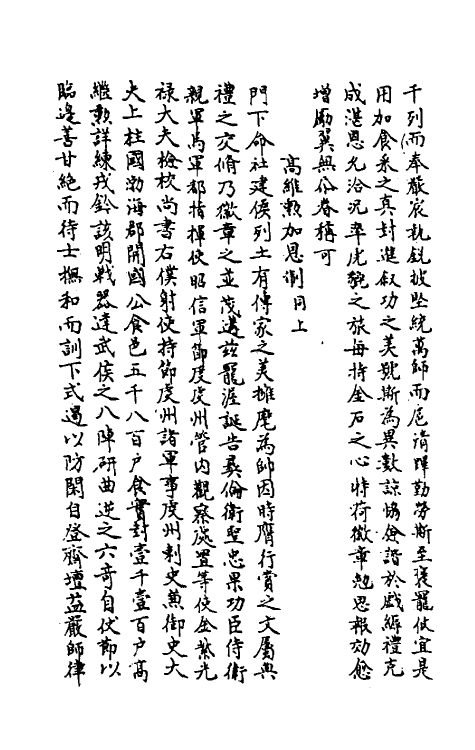 千列而奉嚴宸執銳披堅統萬師而扈清蹕勤勞斯至褒寵攸宜是
用加食釆之真封進叙功之美號斯為異數諒協僉諧於戲縟禮克
成湛恩允洽況率虎貔之旅每持金石之心特荷徽章勉思報効愈
增勵翼無忝眷穪可
高維勲加恩制同上
門下命社建侯列土有傳家之美擁麾為帥因時膺行賞之文屬典
禮之交脩乃徽章之並茂遘兹寵渥誕告彞倫衛聖忠果功臣侍衛
親軍馬軍都指揮使昭信軍節度䖍州管内觀察處置等使金紫光
禄大夫檢校尚書右僕射使持節䖍州諸軍事䖍州刺史兼御史大
夫上柱國渤海郡開國公食邑五千八百户食實封壹千壹百户高
繼勲詳練戎鈐該明戰器達武侯之八陣研曲逆之六竒自仗節以
臨邊善甘絶而待士撫和而訓下式遏以防閑自登齋壇益嚴師律